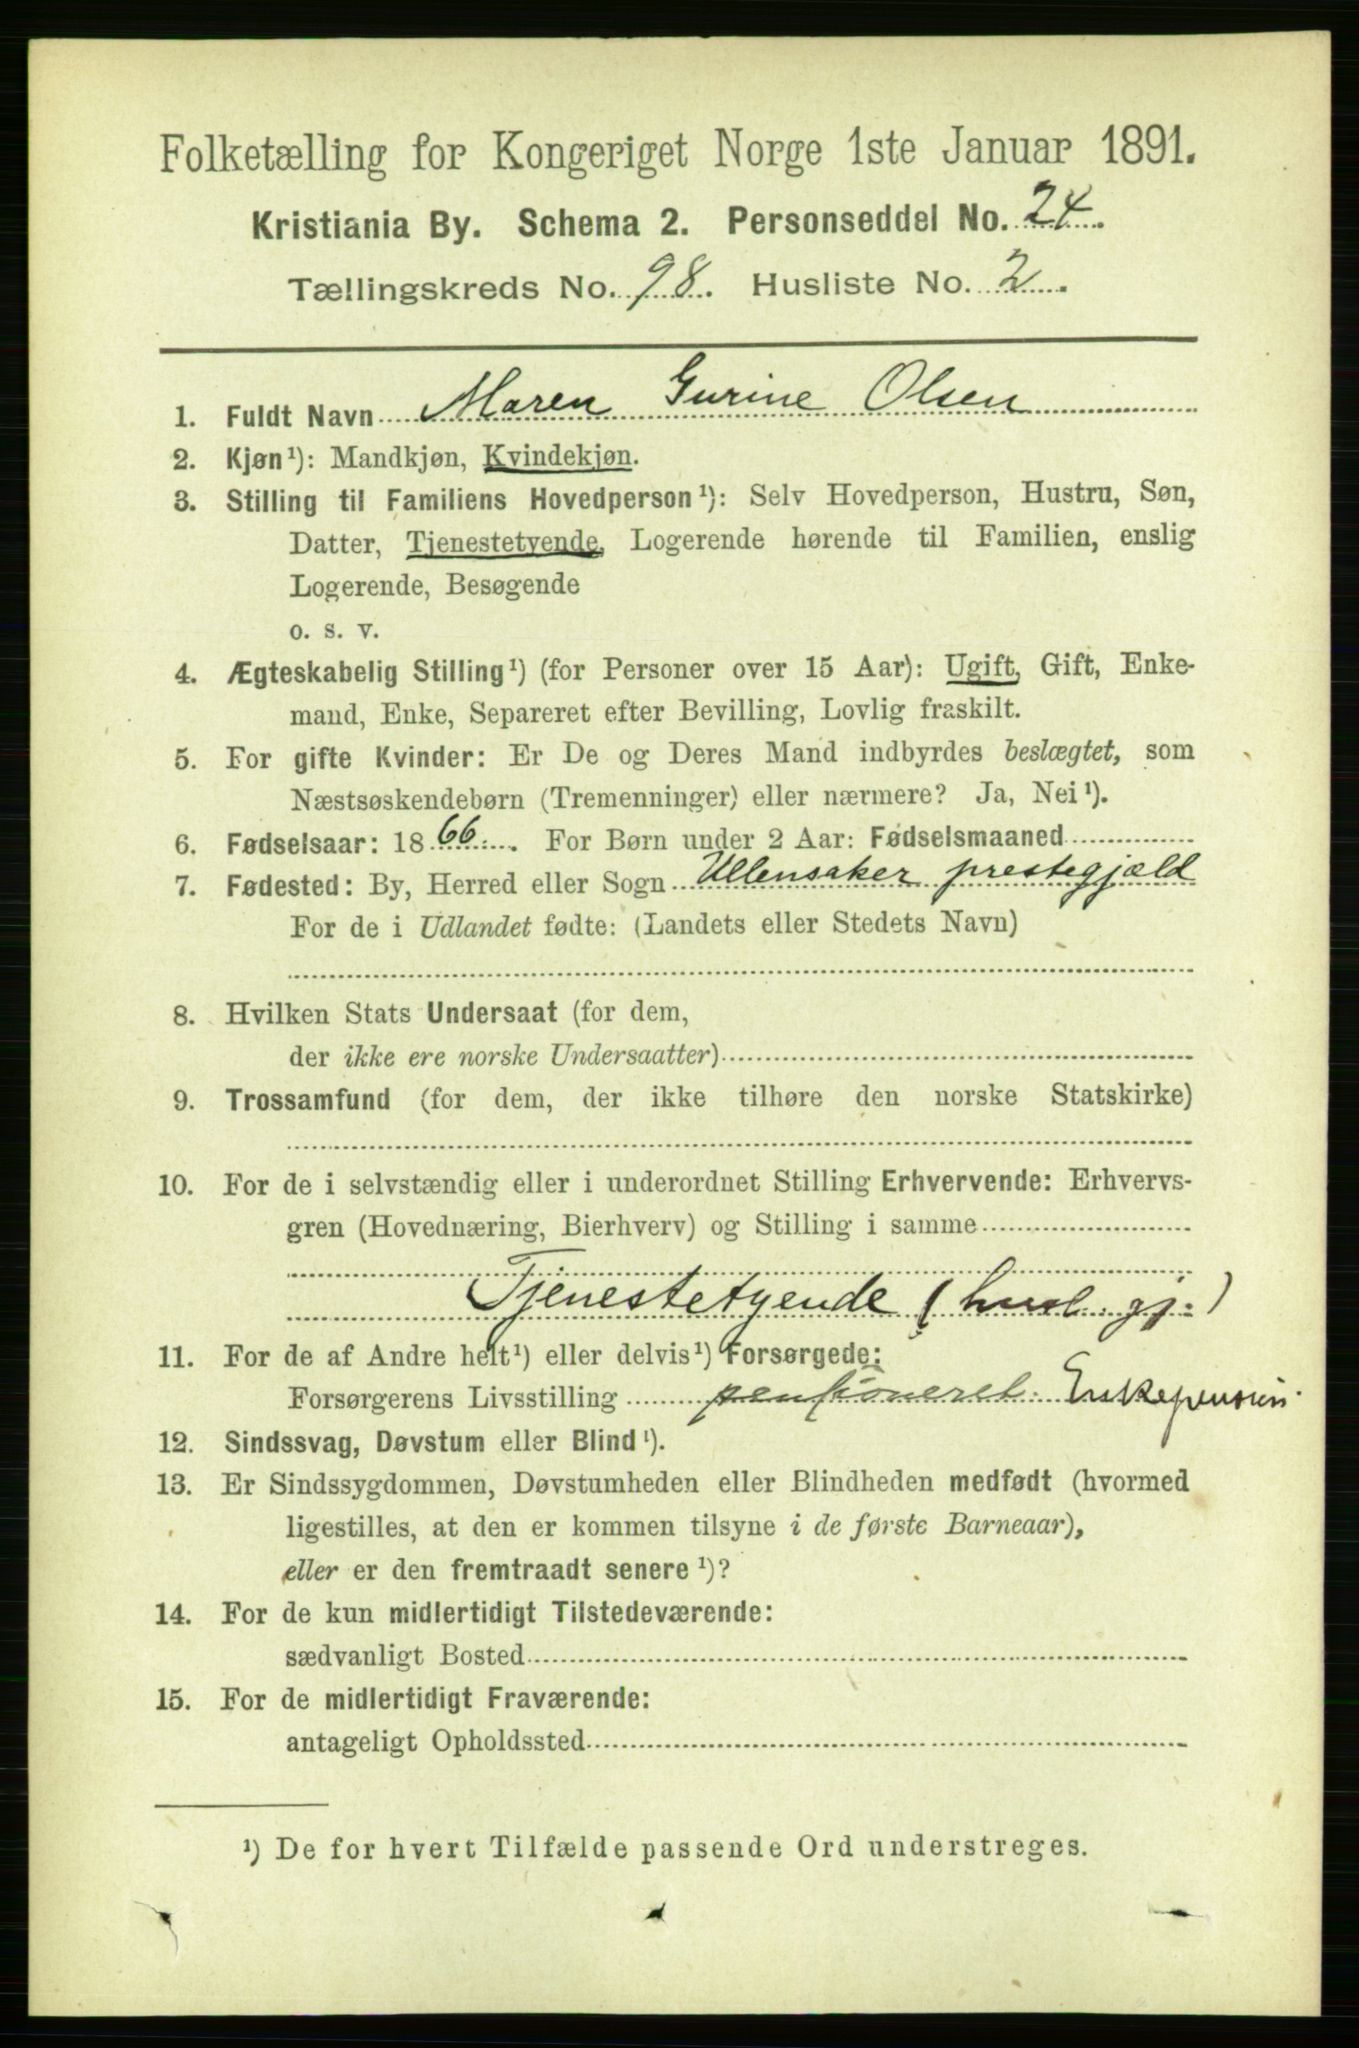 Folketælling for Kongeriget Norge 1ste Januar 1891.
Kristiania By. Schema 2. Personseddel No. 24.
Tællingskreds No. 98. Husliste No. 2.
1. Fuldt Navn Maren Gurine Olsen
2. Kjøn¹): Mandkjøn, Kvindekjøn.
3. Stilling til Familiens Hovedperson¹): Selv Hovedperson, Hustru, Søn,
Datter, Tjenestetyende, Logerende hørende til Familien, enslig
Logerende, Besøgende
o. s. v.
4. Ægteskabelig Stilling¹) (for Personer over 15 Aar): Ugift, Gift, Enke-
mand, Enke, Separeret efter Bevilling, Lovlig fraskilt.
5. For gifte Kvinder: Er De og Deres Mand indbyrdes beslægtet, som
Næstsøskendebørn (Tremenninger) eller nærmere? Ja, Nei¹).
6. Fødselsaar: 1866. For Børn under 2 Aar: Fødselsmaaned
7. Fødested: By, Herred eller Sogn Ullensaker prestegjæld
For de i Udlandet fødte: (Landets eller Stedets Navn)
8. Hvilken Stats Undersaat (for dem,
der ikke ere norske Undersaatter)
9. Trossamfund (for dem, der ikke tilhøre den norske Statskirke)
10. For de i selvstændig eller i underordnet Stilling Erhvervende: Erhvervs-
gren (Hovednæring, Bierhverv) og Stilling i samme
Tjenestetyende (husl. gj.)
11. For de af Andre helt¹) eller delvis¹) Forsørgede:
Forsørgerens Livsstilling pensioneret. Enkepension
12. Sindssvag, Døvstum eller Blind¹).
13. Er Sindssygdommen, Døvstumheden eller Blindheden medfødt (hvormed
ligestilles, at den er kommen tilsyne i de første Barneaar),
eller er den fremtraadt senere¹)?
14. For de kun midlertidigt Tilstedeværende:
sædvanligt Bosted
15. For de midlertidigt Fraværende:
antageligt Opholdssted
¹) De for hvert Tilfælde passende Ord understreges.